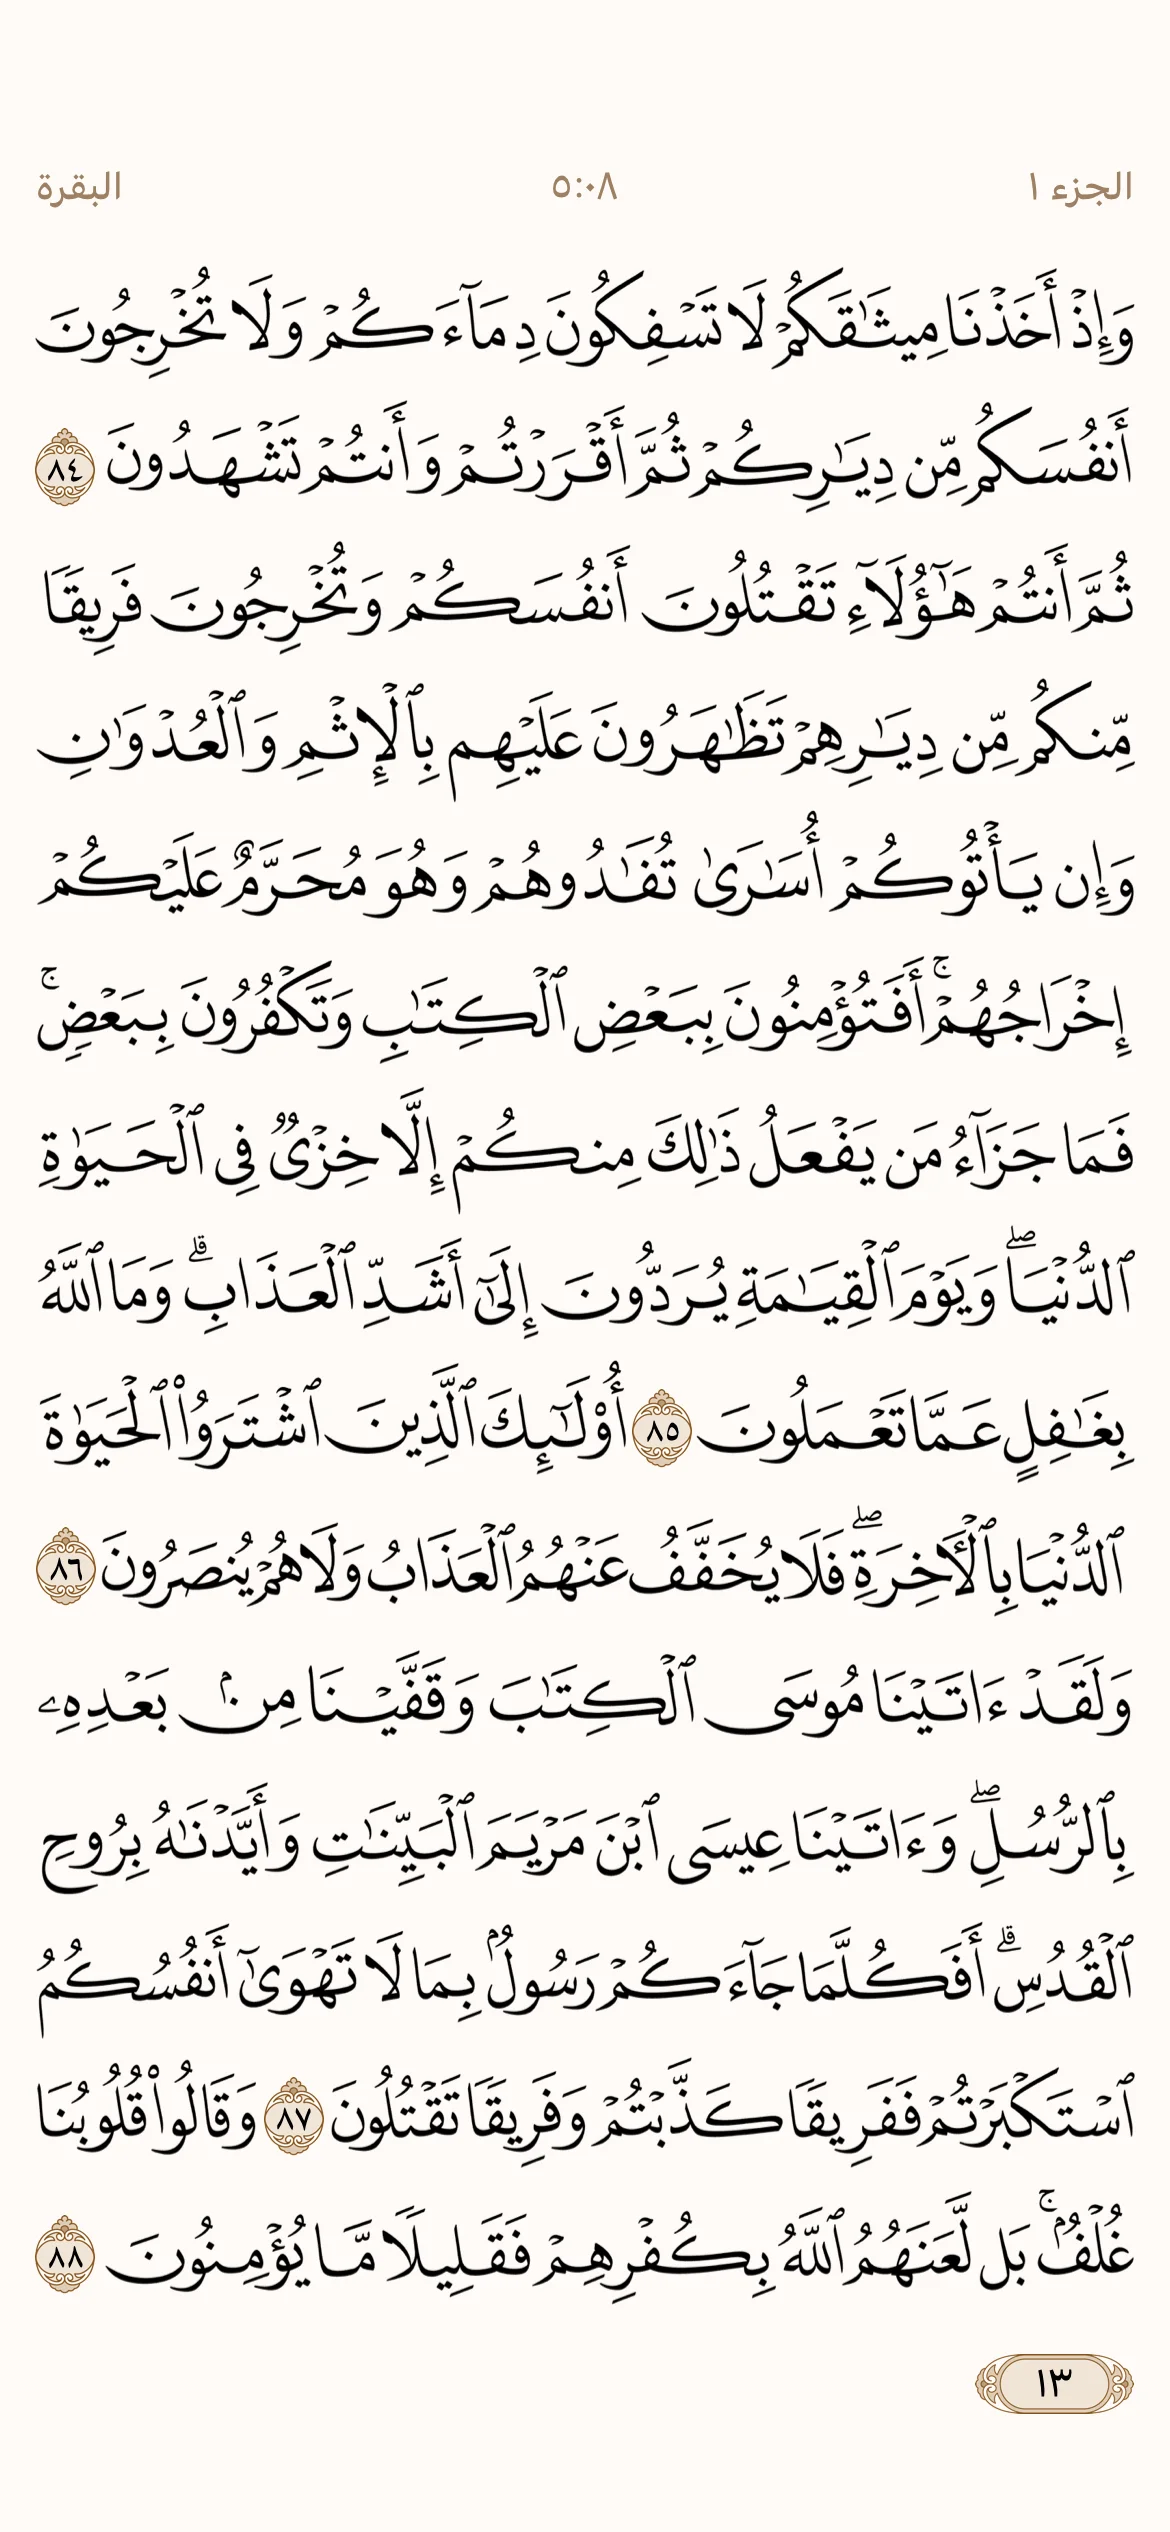 الجزء ١
٥:٠٨
البقرة
وَإِذْ أَخَذْنَا مِيثَٰقَكُمْ لَا تَسْفِكُونَ دِمَآءَكُمْ وَلَا تُخْرِجُونَ
أَنفُسَكُم مِّن دِيَٰرِكُمْ ثُمَّ أَقْرَرْتُمْ وَأَنتُمْ تَشْهَدُونَ ٨٤
ثُمَّ أَنتُمْ هَٰٓؤُلَآءِ تَقْتُلُونَ أَنفُسَكُمْ وَتُخْرِجُونَ فَرِيقًا
مِّنكُم مِّن دِيَٰرِهِمْ تَظَٰهَرُونَ عَلَيْهِم بِٱلْإِثْمِ وَٱلْعُدْوَٰنِ
وَإِن يَأْتُوكُمْ أُسَٰرَىٰ تُفَٰدُوهُمْ وَهُوَ مُحَرَّمٌ عَلَيْكُمْ
إِخْرَاجُهُمْ ۚ أَفَتُؤْمِنُونَ بِبَعْضِ ٱلْكِتَٰبِ وَتَكْفُرُونَ بِبَعْضٍ ۚ
فَمَا جَزَآءُ مَن يَفْعَلُ ذَٰلِكَ مِنكُمْ إِلَّا خِزْىٌ فِى ٱلْحَيَوٰةِ
ٱلدُّنْيَا ۖ وَيَوْمَ ٱلْقِيَٰمَةِ يُرَدُّونَ إِلَىٰٓ أَشَدِّ ٱلْعَذَابِ ۗ وَمَا ٱللَّهُ
بِغَٰفِلٍ عَمَّا تَعْمَلُونَ ٨٥ أُو۟لَٰٓئِكَ ٱلَّذِينَ ٱشْتَرَوُا۟ ٱلْحَيَوٰةَ
ٱلدُّنْيَا بِٱلْءَاخِرَةِ ۖ فَلَا يُخَفَّفُ عَنْهُمُ ٱلْعَذَابُ وَلَا هُمْ يُنصَرُونَ ٨٦
وَلَقَدْ ءَاتَيْنَا مُوسَى ٱلْكِتَٰبَ وَقَفَّيْنَا مِنۢ بَعْدِهِۦ
بِٱلرُّسُلِ ۖ وَءَاتَيْنَا عِيسَى ٱبْنَ مَرْيَمَ ٱلْبَيِّنَٰتِ وَأَيَّدْنَٰهُ بِرُوحِ
ٱلْقُدُسِ ۗ أَفَكُلَّمَا جَآءَكُمْ رَسُولٌۢ بِمَا لَا تَهْوَىٰٓ أَنفُسُكُمُ
ٱسْتَكْبَرْتُمْ فَفَرِيقًا كَذَّبْتُمْ وَفَرِيقًا تَقْتُلُونَ ٨٧ وَقَالُوا۟ قُلُوبُنَا
غُلْفٌۢ ۚ بَل لَّعَنَهُمُ ٱللَّهُ بِكُفْرِهِمْ فَقَلِيلًا مَّا يُؤْمِنُونَ ٨٨
١٣